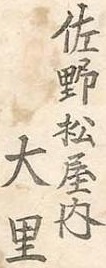 佐野松屋内
大里